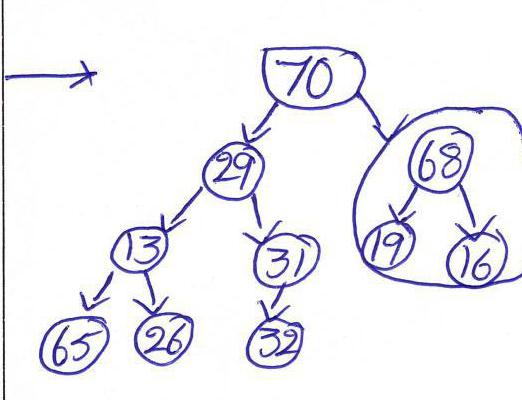 70
29 68
13 31 19 16
65 26 32